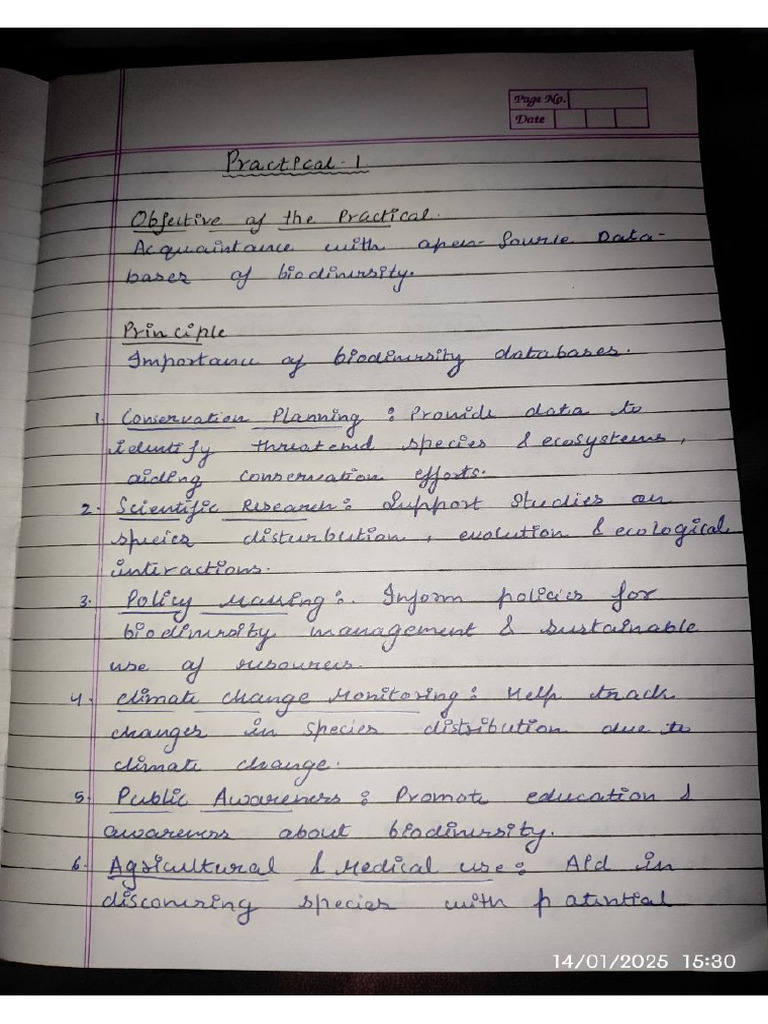 Page No.
Date
Practical - 1
Objective of the Practical.
Acquaintance with open-Source Data-
bases of biodiversity.
Principle
Importance of biodiversity databases.
1. Conservation Planning : Provide data to
identify threatend species & ecosystems,
aiding conservation efforts.
2. Scientific Research : Support studies on
species disturbution, evolution & ecological
interactions.
3. Policy Making : Inform policies for
biodiversity management & sustainable
use of resources.
4. Climate change Monitoring : Help track
changes in species distribution due to
climate change.
5. Public Awareness : Promote education &
awareness about biodiversity.
6. Agricultural & Medical use : Aid in
discovering species with potential
14/01/2025 15:30